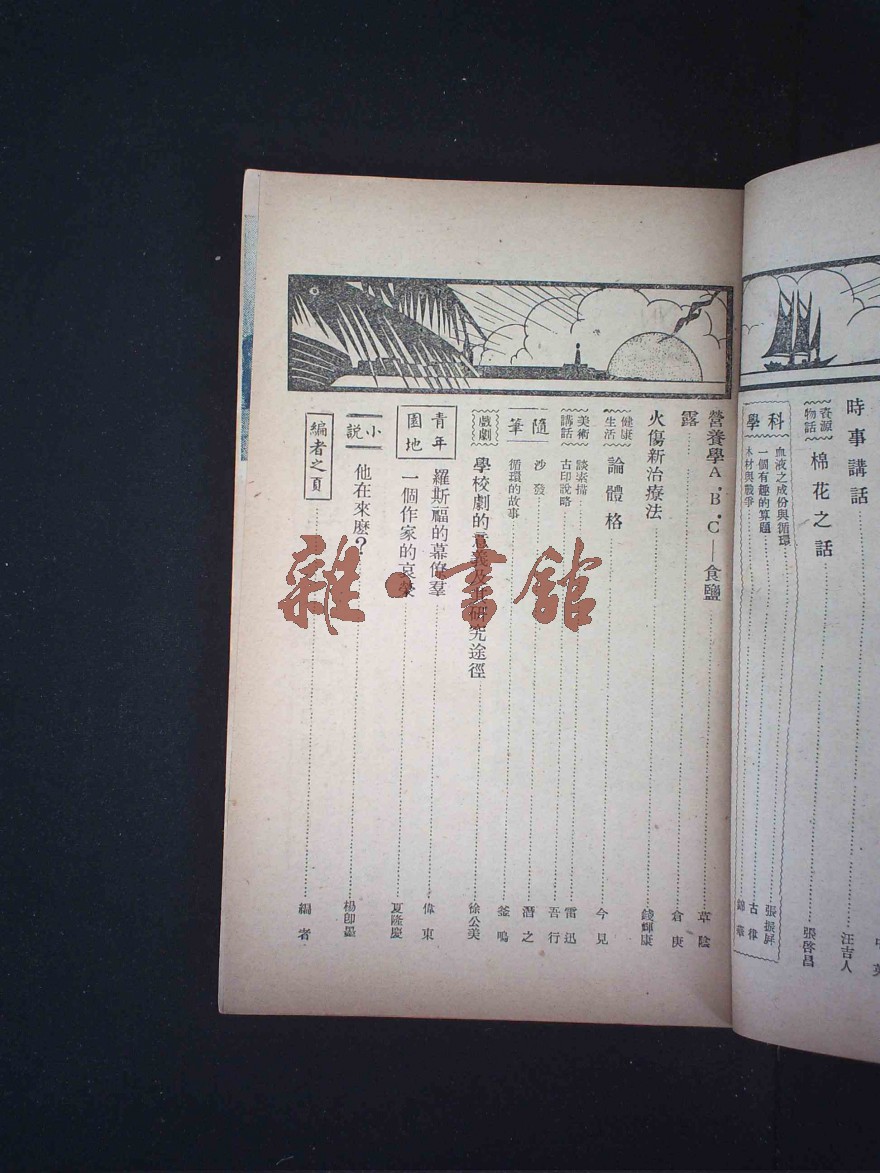 時事講話 汪吉人
資源物話 棉花之話 張啓昌
科學
血液之成份與循環 張振屏
一個有趣的算題 古律
木材與戰爭
營養學A.B.C—食鹽 草陰
露 倉庚
火傷新治療法 錢輝康
健康生活 論體格 今見
美術講話
談素描 雷迅
古印說略 吾行
隨筆
沙發 潛之
循環的故事 釜鳴
戲劇 學校劇的意義及其研究途徑 徐公美
青年園地
羅斯福的幕僚羣 偉東
一個作家的哀榮 夏隆慶
小說 他在來麼？ 楊卽墨
編者之頁 編者
雜·書館